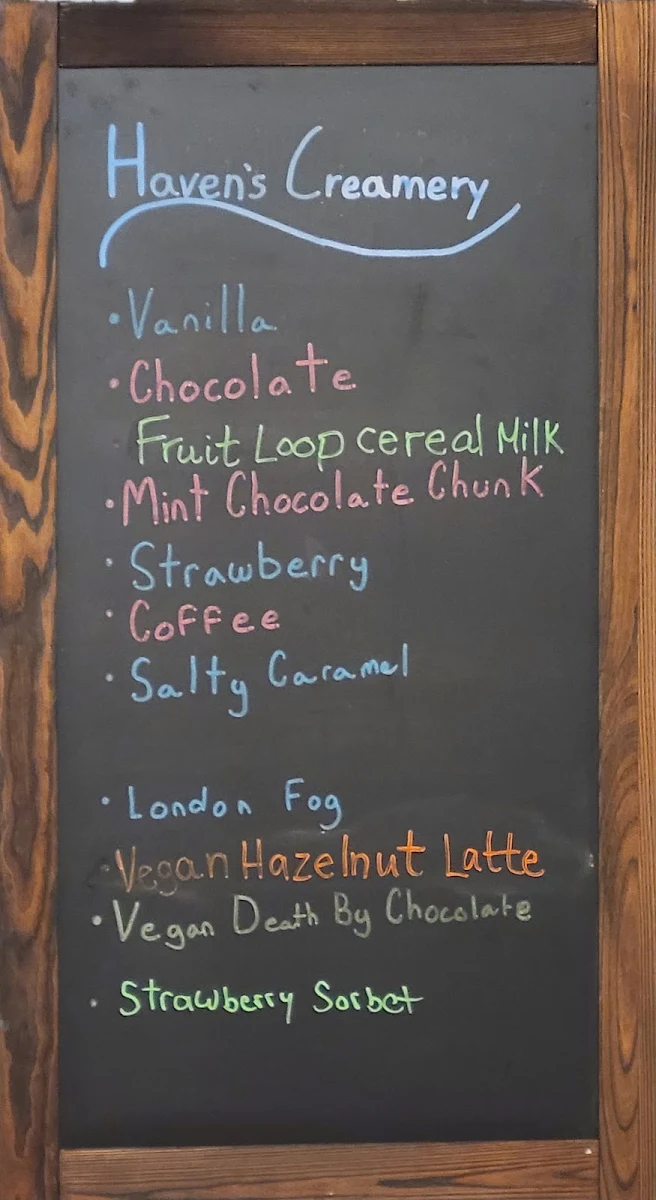 Haven's Creamery
• Vanilla
• Chocolate
Fruit Loop cereal Milk
• Mint Chocolate Chunk
• Strawberry
• Coffee
• Salty Caramel
• London Fog
• Vegan Hazelnut Latte
• Vegan Death By Chocolate
• Strawberry Sorbet